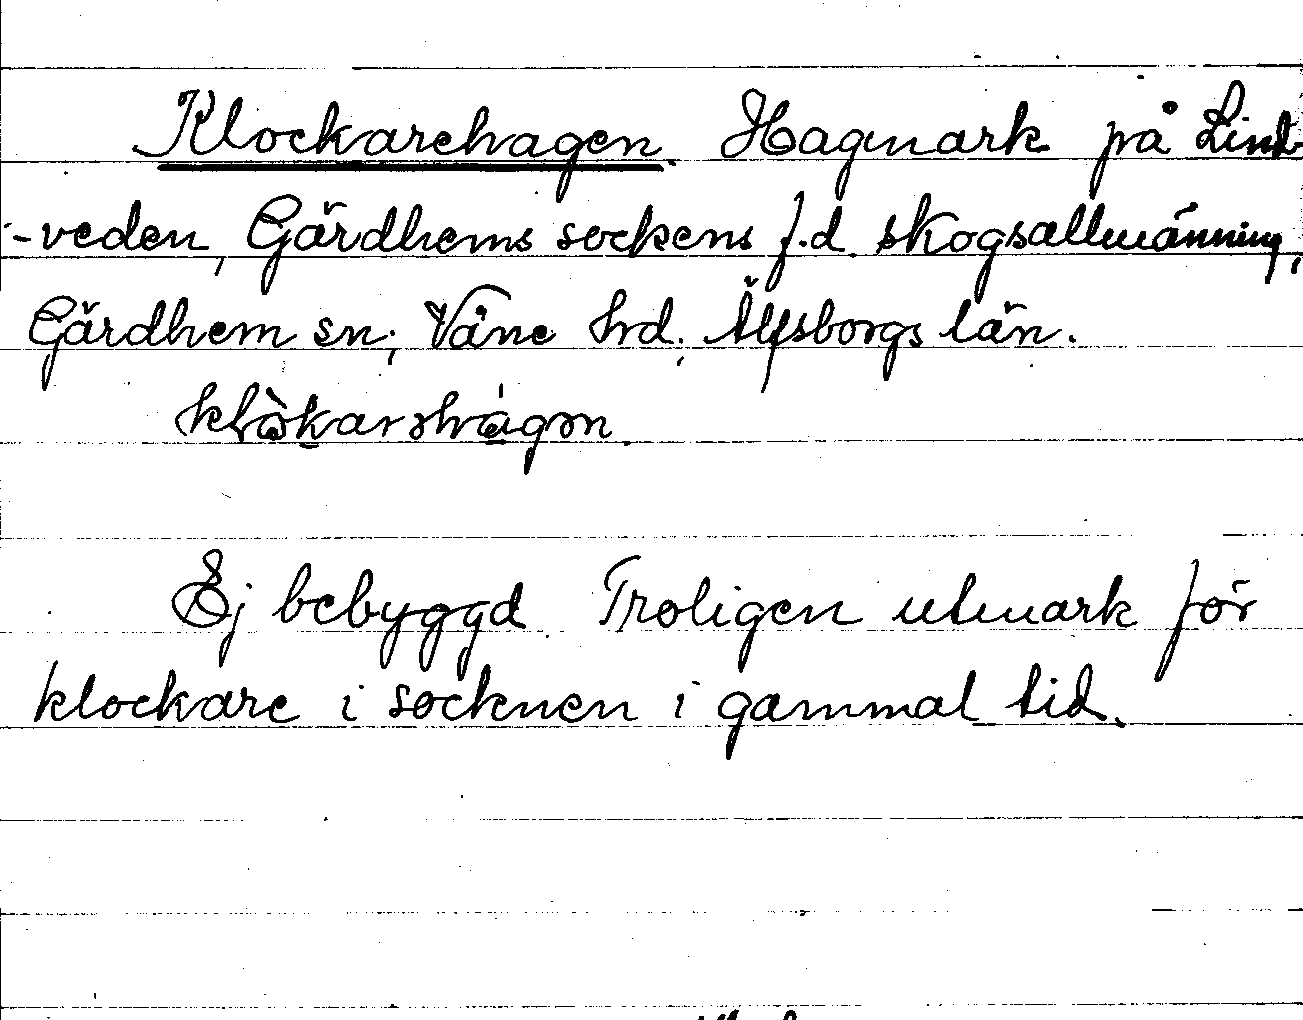 Klockarehagen. Hagmark på Lind-
-veden, Gärdhems sockens f.d. skogsallmänning,
Gärdhem sn; Väne hrd; Älfsborgs län.
Ej bebyggd Troligen utmark för
klockare i socknen i gammal tid.